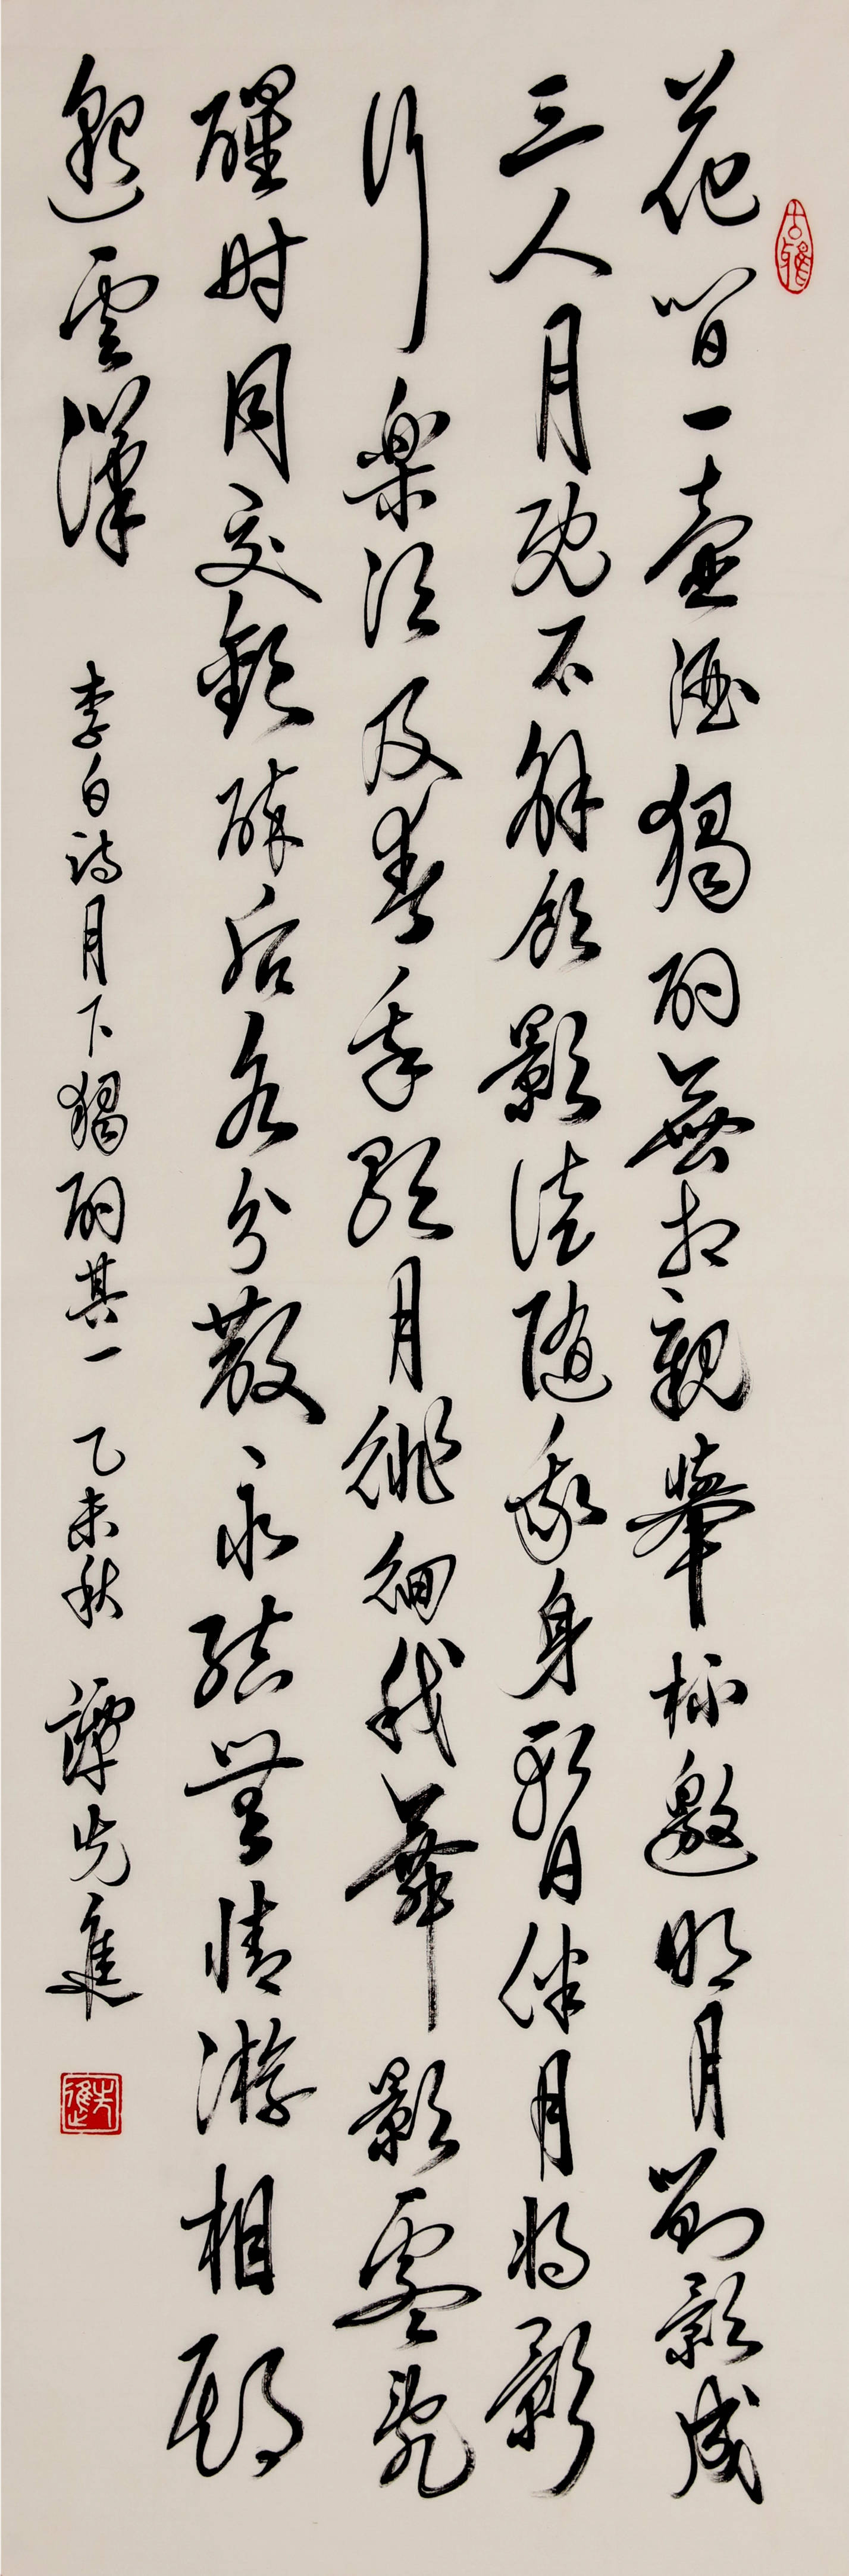 花間一壺酒獨酌無相親舉杯邀明月對影成
三人月既不解飲影徒隨我身暫月伴月將影
行樂須及春我歌月徘徊我舞影零亂
醒時同交歡醉后各分散永結無情游相期
邈雲漢
李白詩月下獨酌其一 乙未秋 譚先進
先進